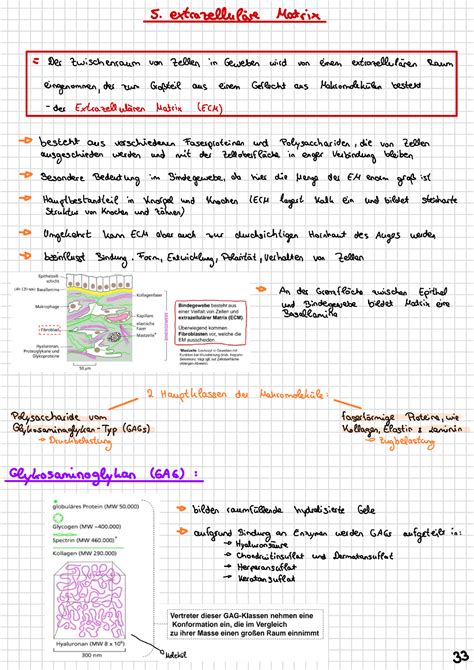 5. extrazelluläre Matrix
= Der Zwischenraum von Zellen in Geweben wird von einem extrazellulären Raum
eingenommen, der zum Großteil aus einem Geflecht aus Makromolekülen besteht
- der Extrazellulären Matrix (ECM)
besteht aus verschiedenen Faserproteinen und Polysacchariden, die von Zellen
ausgeschieden werden und mit der Zelloberfläche in enger Verbindung bleiben
Besondere Bedeutung im Bindegewebe, da hier die Menge der EM enorm groß ist
Hauptbestandteil in Knorpel und Knochen (ECM lagert Kalk ein und bildet steinharte
Struktur von Knochen und Zähnen)
Umgekehrt kann ECM aber auch zur durchsichtigen Hornhaut des Auges werden
beeinflusst Bindung, Form, Entwicklung, Polarität, Verhalten von Zellen
Epithelzell-
schicht
Basallamina
Makrophage
Fibroblast
Hyaluronan,
Proteoglycane und
Glykoproteine
Kollagenfaser
Kapillare
elastische
Faser
Mastzelle*
50 µm
Bindegewebe besteht aus
einer Vielfalt von Zellen und
extrazellulärer Matrix (ECM).
Überwiegend kommen
Fibroblasten vor, welche die
EM ausscheiden.
An der Grenzfläche zwischen Epithel
und Bindegewebe bildet Matrix eine
Basallamina
2 Hauptklassen der Makromoleküle:
Polysaccharide vom
Glykosaminoglykan-Typ (GAGs)
→ Druckbelastung
faserförmige Proteine, wie
Kollagen, Elastin & Laminin
→ Zugbelastung
Glykosaminoglykan (GAG) :
globuläres Protein (MW 50.000)
Glycogen (MW ~400.000)
Spectrin (MW 460.000)
Kollagen (MW 290.000)
Hyaluronan (MW 8 x 10⁶)
300 nm
bilden raumfüllende hydratisierte Gele
aufgrund Bindung an Enzymen werden GAGs aufgeteilt in:
→ Hyaluronsäure
→ Chondroitinsulfat und Dermatansulfat
→ Heparansulfat
→ Keratansulfat
Vertreter dieser GAG-Klassen nehmen eine
Konformation ein, die im Vergleich
zu ihrer Masse einen großen Raum einnimmt
33